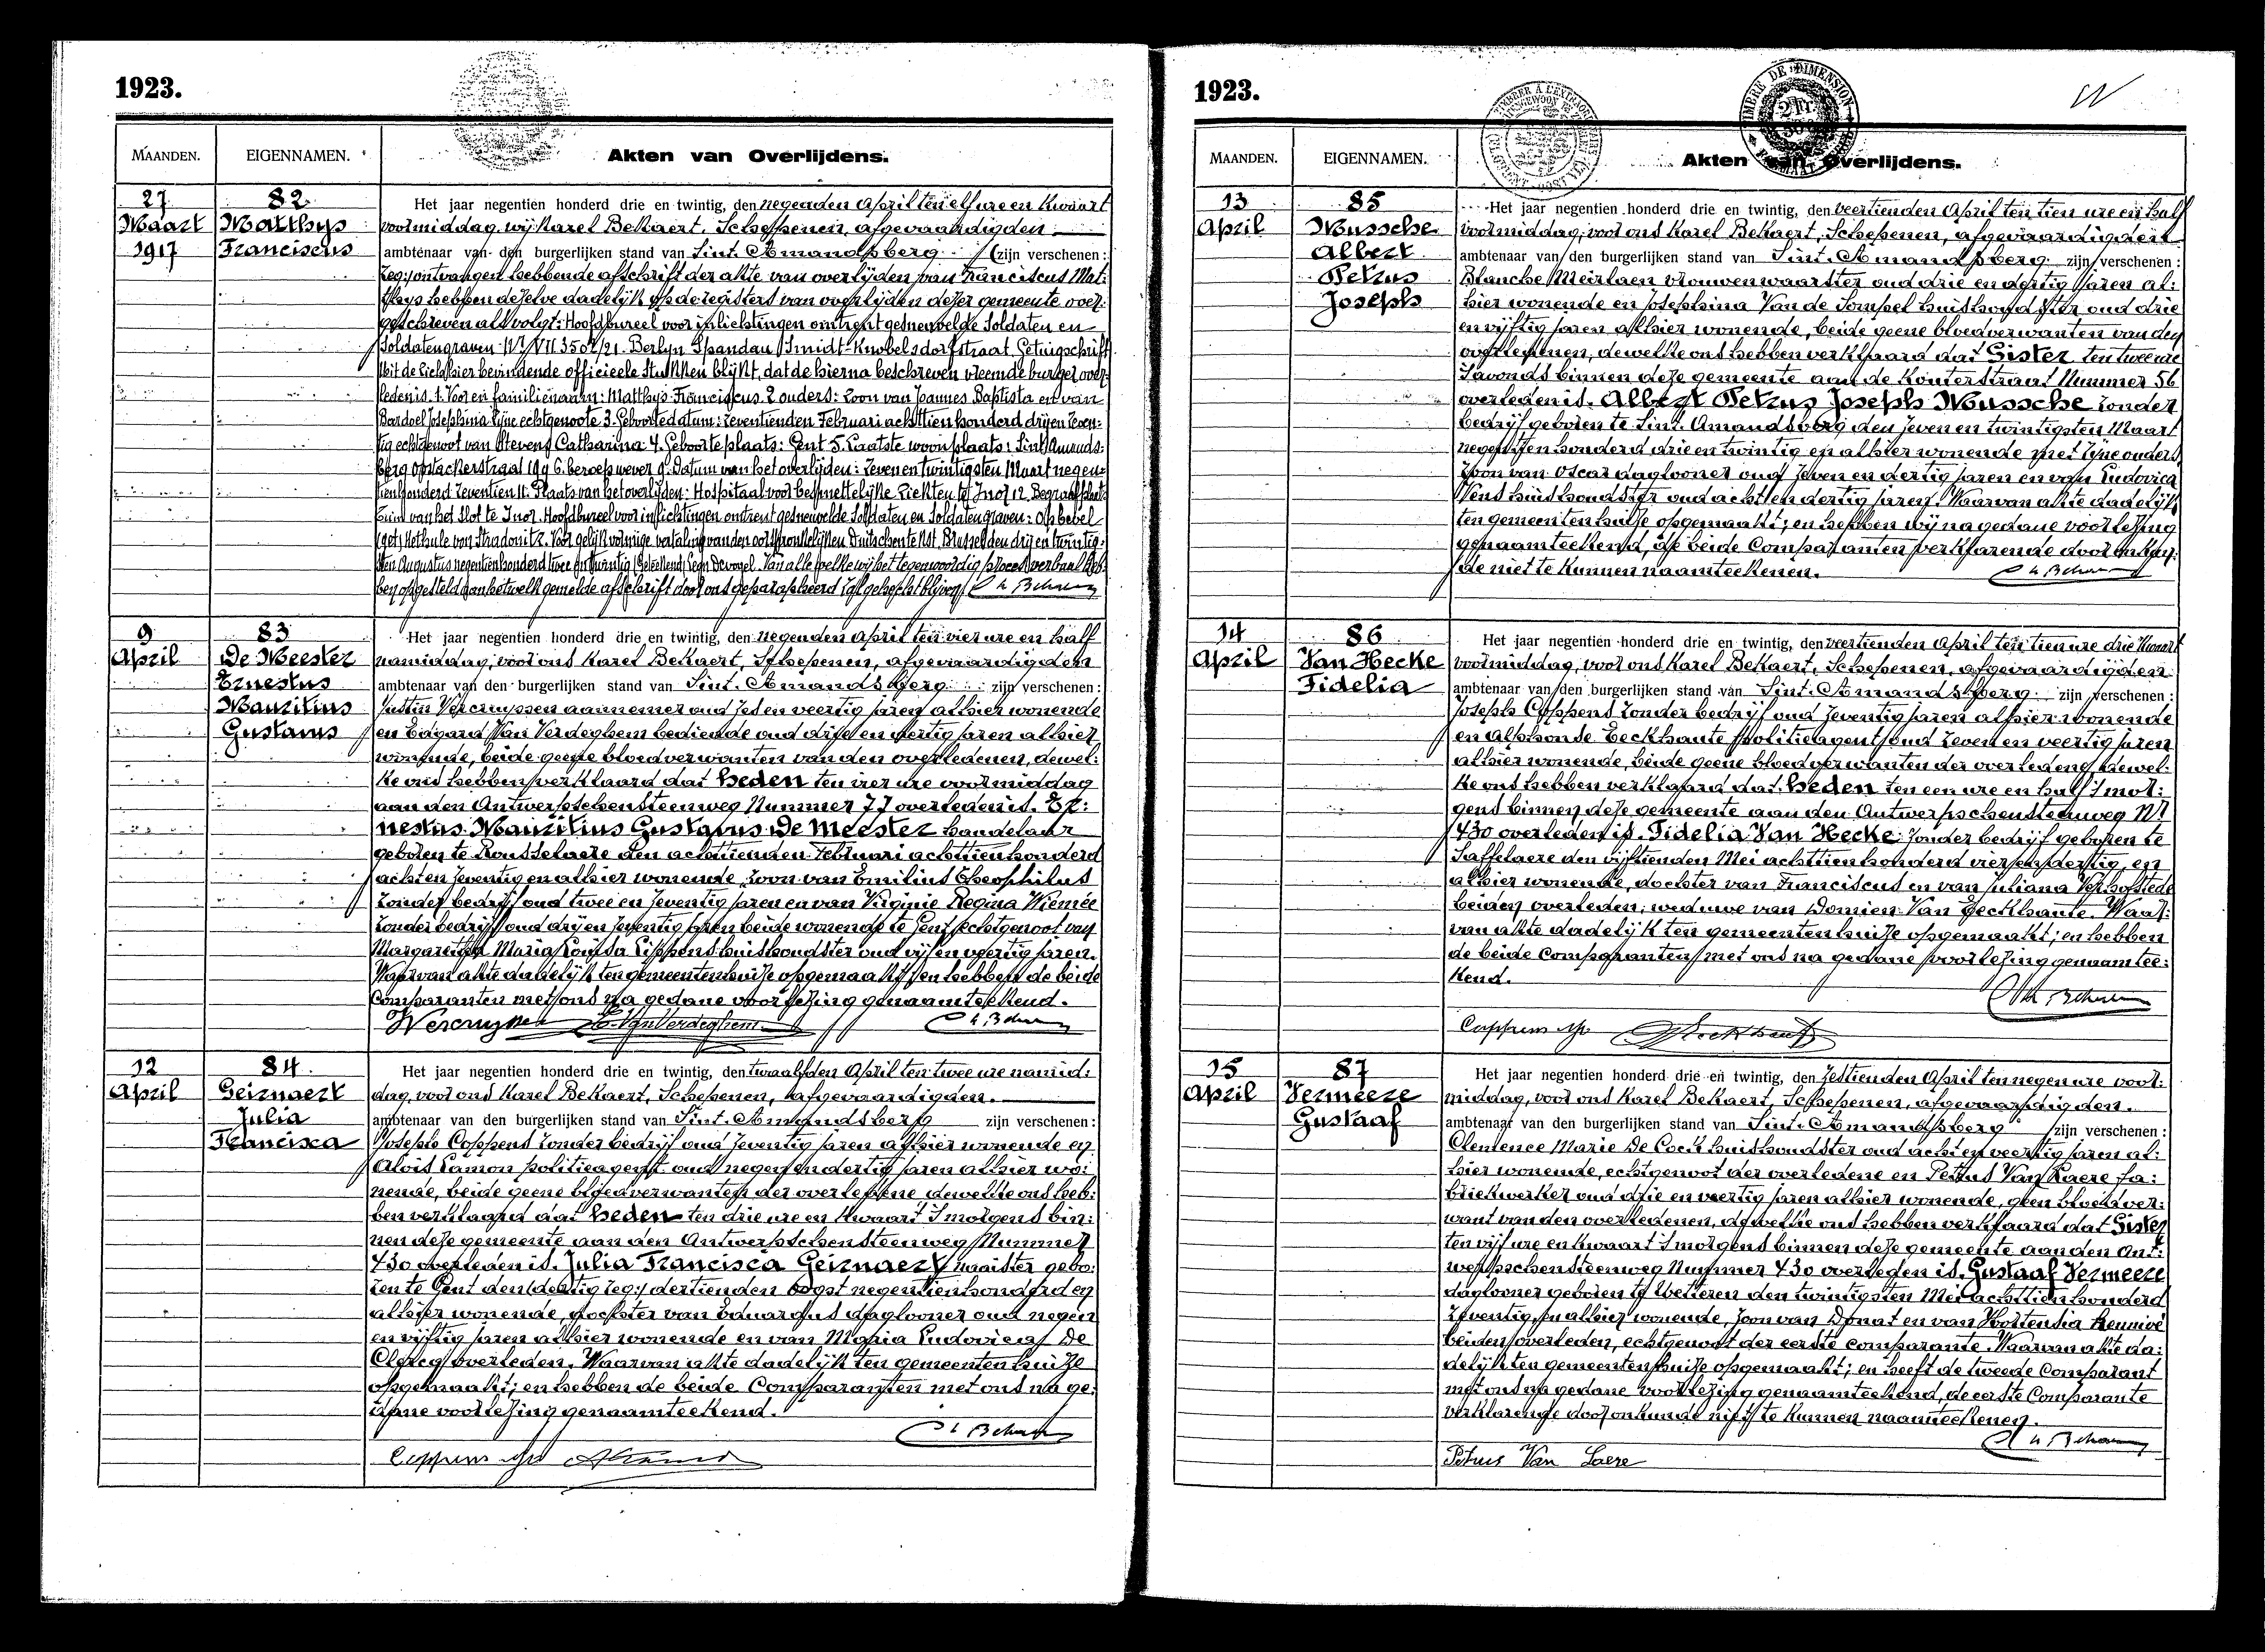 1923.
MAANDEN.
EIGENNAMEN.
Akten van Overlijdens.
27
Maart
1917
82
Matthys
Franciscus
Het jaar negentien honderd drie en twintig, den negenden April ten elf ure en kwaart
voormiddag, wij Karel Bekaert, Schepenen, afgevaardigden
ambtenaar van den burgerlijken stand van Sint-Amandsberg (zijn verschenen:
reg:) ontvangen hebbende afschrift der akte van overlijden van Franciscus Mat-
thys hebben dezelve dadelijk op de registers van overlijden dezer gemeente over-
geschreven als volgt: Hoofdbureel voor inlichtingen omtrent gesneuvelde Soldaten en
Soldatengraven Berlyn Spandau Smidt-Knobelsdorfstraat Getuigschrift
Uit de hier bevindende officieele stukken blijkt, dat de hierna beschreven vreemde burger over-
leden is. 1. Voor en familienaam: Matthys Franciscus. 2 ouders: Zoon van Joannes Baptista en van
Bardoel Josephina zijne echtgenoote 3. Geboortedatum: Zeventienden Februari achttien honderd drij en zeven-
tig echtgenoot van Stevens Catharina 4. Geboorteplaats: Gent 5. Laatste woonplaats: Sint Amands-
berg 6. beroep wever 9. Datum van het overlijden: Zeven en twintigsten Maart negen-
tien honderd zeventien 11. Plaats van het overlijden: Hospitaal voor besmettelijke Ziekten 12. Begraafplaats
van het Slot te Hoofdbureel voor inlichtingen omtrent gesneuvelde Soldaten en Soldatengraven: Op bevel
(get) Kethule von Stradonitz. Voor gelijkvormige vertaling van den oorspronkelijken Duitschen tekst, Brussel den drij en twintig-
sten Augustus negentien honderd twee en twintig
ben opgesteld aan hetwelk gemelde afschrift door ons geparapheerd zal gehecht blijven
9
April
83
De Meester
Ernestus
Mauritius
Gustavus
Het jaar negentien honderd drie en twintig, den negenden April ten vier ure en half
namiddag, voor ons Karel Bekaert, Schepenen, afgevaardigden
ambtenaar van den burgerlijken stand van Sint-Amandsberg zijn verschenen:
Justin Vercruyssen aannemer oud zes en veertig jaren alhier wonende
en Edgard Van Verdeghem bediende oud drij en dertig jaren alhier
wonende, beide geene bloedverwanten van den overledenen, dewel-
ke ons hebben verklaard dat heden ten vier ure voormiddag
aan den Antwerpschensteenweg Nummer 77 overleden is. Er-
nestus Mauritius Gustavus De Meester handelaar
geboren te Rousselaere den achttienden Februari achttien honderd
acht en zeventig en alhier wonende, zoon van Emilius Theophilus
zonder bedrijf oud twee en zeventig jaren en van Virginie Regina Wiemée
zonder bedrijf oud drij en zeventig jaren beide wonende te Gent, echtgenoot van
Margaretha Maria Louisa Lippens huishoudster oud vijf en veertig jaren.
Waarvan akte dadelijk ten gemeentenhuize opgemaakt; en hebben de beide
Comparanten met ons na gedane voorlezing genaamteekend.
E. Van Verdeghem
12
April
84
Geirnaert
Julia
Francisca
Het jaar negentien honderd drie en twintig, den twaalfden April ten twee ure namid-
dag, voor ons Karel Bekaert, Schepenen, afgevaardigden.
ambtenaar van den burgerlijken stand van Sint-Amandsberg zijn verschenen:
Joseph Coppens zonder bedrijf oud zeventig jaren alhier wonende en
Alois Lamon politieagent oud negen en dertig jaren alhier wo-
nende, beide geene bloedverwanten der overledene dewelke ons heb-
ben verklaard dat heden ten drie ure en kwaart 's morgens bin-
nen deze gemeente aan den Antwerpschensteenweg Nummer
430 overleden is. Julia Francisca Geirnaert naaister gebo-
ren te Gent den (dertig reg:) dertienden oogst negentien honderd en
alhier wonende, dochter van Eduardus daglooner oud negen
en vijftig jaren alhier wonende en van Maria Ludovica De
Clercq overleden. Waarvan akte dadelijk ten gemeentenhuize
opgemaakt; en hebben de beide Comparanten met ons na ge-
dane voorlezing genaamteekend.
1923.
MAANDEN.
EIGENNAMEN.
Akten van Overlijdens.
13
April
85
Mussche
Albert
Petrus
Joseph
Het jaar negentien honderd drie en twintig, den veertienden April ten tien ure en half
voormiddag, voor ons Karel Bekaert, Schepenen, afgevaardigden
ambtenaar van den burgerlijken stand van Sint-Amandsberg zijn verschenen:
Blanche Meirlaen vrouwenwaarster oud drie en dertig jaren al-
hier wonende en Josephina Van de Sompel huishoudster oud drie
en vijftig jaren alhier wonende, beide geene bloedverwanten van den
overledenen, dewelke ons hebben verklaard dat Gister ten twee ure
's avonds binnen deze gemeente aan de Kouterstraat Nummer 56
overleden is. Albert Petrus Joseph Mussche zonder
bedrijf geboren te Sint-Amandsberg den zeven en twintigsten Maart
negentien honderd drie en twintig en alhier wonende met zijne ouders,
zoon van Oscar daglooner oud zeven en dertig jaren en van Ludovica
huishoudster oud acht en dertig jaren. Waarvan akte dadelijk
ten gemeentenhuize opgemaakt; en hebben wij na gedane voorlezing
genaamteekend, de beide Comparanten verklarende door onkun-
de niet te kunnen naamteekenen.
14
April
86
Van Hecke
Fidelia
Het jaar negentien honderd drie en twintig, den veertienden April ten tien ure drie kwaart
voormiddag, voor ons Karel Bekaert, Schepenen, afgevaardigden
ambtenaar van den burgerlijken stand van Sint-Amandsberg zijn verschenen:
Joseph Coppens zonder bedrijf oud zeventig jaren alhier wonende
en Alphonse Eeckhaute politieagent oud zeven en veertig jaren
alhier wonende, beide geene bloedverwanten der overledene, dewel-
ke ons hebben verklaard dat heden ten een ure en half 's mor-
gens binnen deze gemeente aan den Antwerpschensteenweg Nr
430 overleden is. Fidelia Van Hecke zonder bedrijf geboren te
Saffelaere den vijftienden Mei achttien honderd vier en dertig, en
alhier wonende, dochter van Franciscus en van Juliana Verhofstede
beiden overleden; weduwe van Domien Van Eeckhaute. Waar-
van akte dadelijk ten gemeentenhuize opgemaakt; en hebben
de beide Comparanten met ons na gedane voorlezing genaamtee-
kend.
15
April
87
Vermeere
Gustaaf
Het jaar negentien honderd drie en twintig, den zestienden April ten negen ure voor-
middag, voor ons Karel Bekaert, Schepenen, afgevaardigden.
ambtenaar van den burgerlijken stand van Sint-Amandsberg zijn verschenen:
Clemence Marie De Cock huishoudster oud acht en veertig jaren al-
hier wonende, echtgenoot der overledene en Petrus Van Laere fa-
briekwerker oud drie en veertig jaren alhier wonende, geen bloedver-
want van den overledenen, dewelke ons hebben verklaard dat Gister
ten vijf ure en kwaart 's morgens binnen deze gemeente aan den Ant-
werpschensteenweg Nummer 430 overleden is. Gustaaf Vermeere
daglooner geboren te Wetteren den twintigsten Mei achttien honderd
zeventig, en alhier wonende, zoon van Donat en van Hortensia
beiden overleden, echtgenoot der eerste comparante. Waarvan akte da-
delijk ten gemeentenhuize opgemaakt; en heeft de tweede Comparant
met ons na gedane voorlezing genaamteekend, de eerste Comparante
verklarende door onkunde niet te kunnen naamteekenen.
Petrus Van Laere